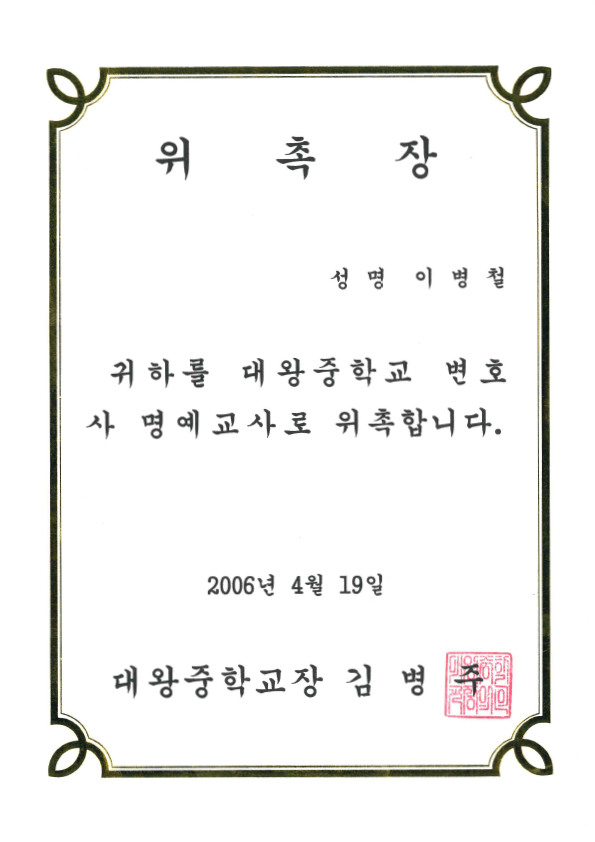 위 촉 장
성 명 이 병 철
귀하를 대왕중학교 변호
사 명예교사로 위촉합니다.
2006년 4월 19일
대왕중학교장 김 병 주